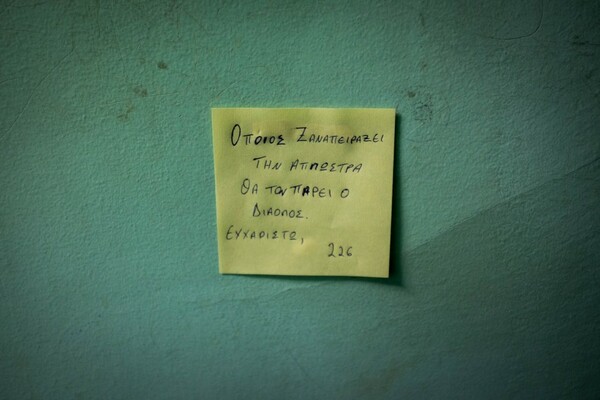 Οποιος Ξαναπειραξει
Την απλωστρα
Θα τον παρει ο
Διαολος.
Ευχαριστω,
226